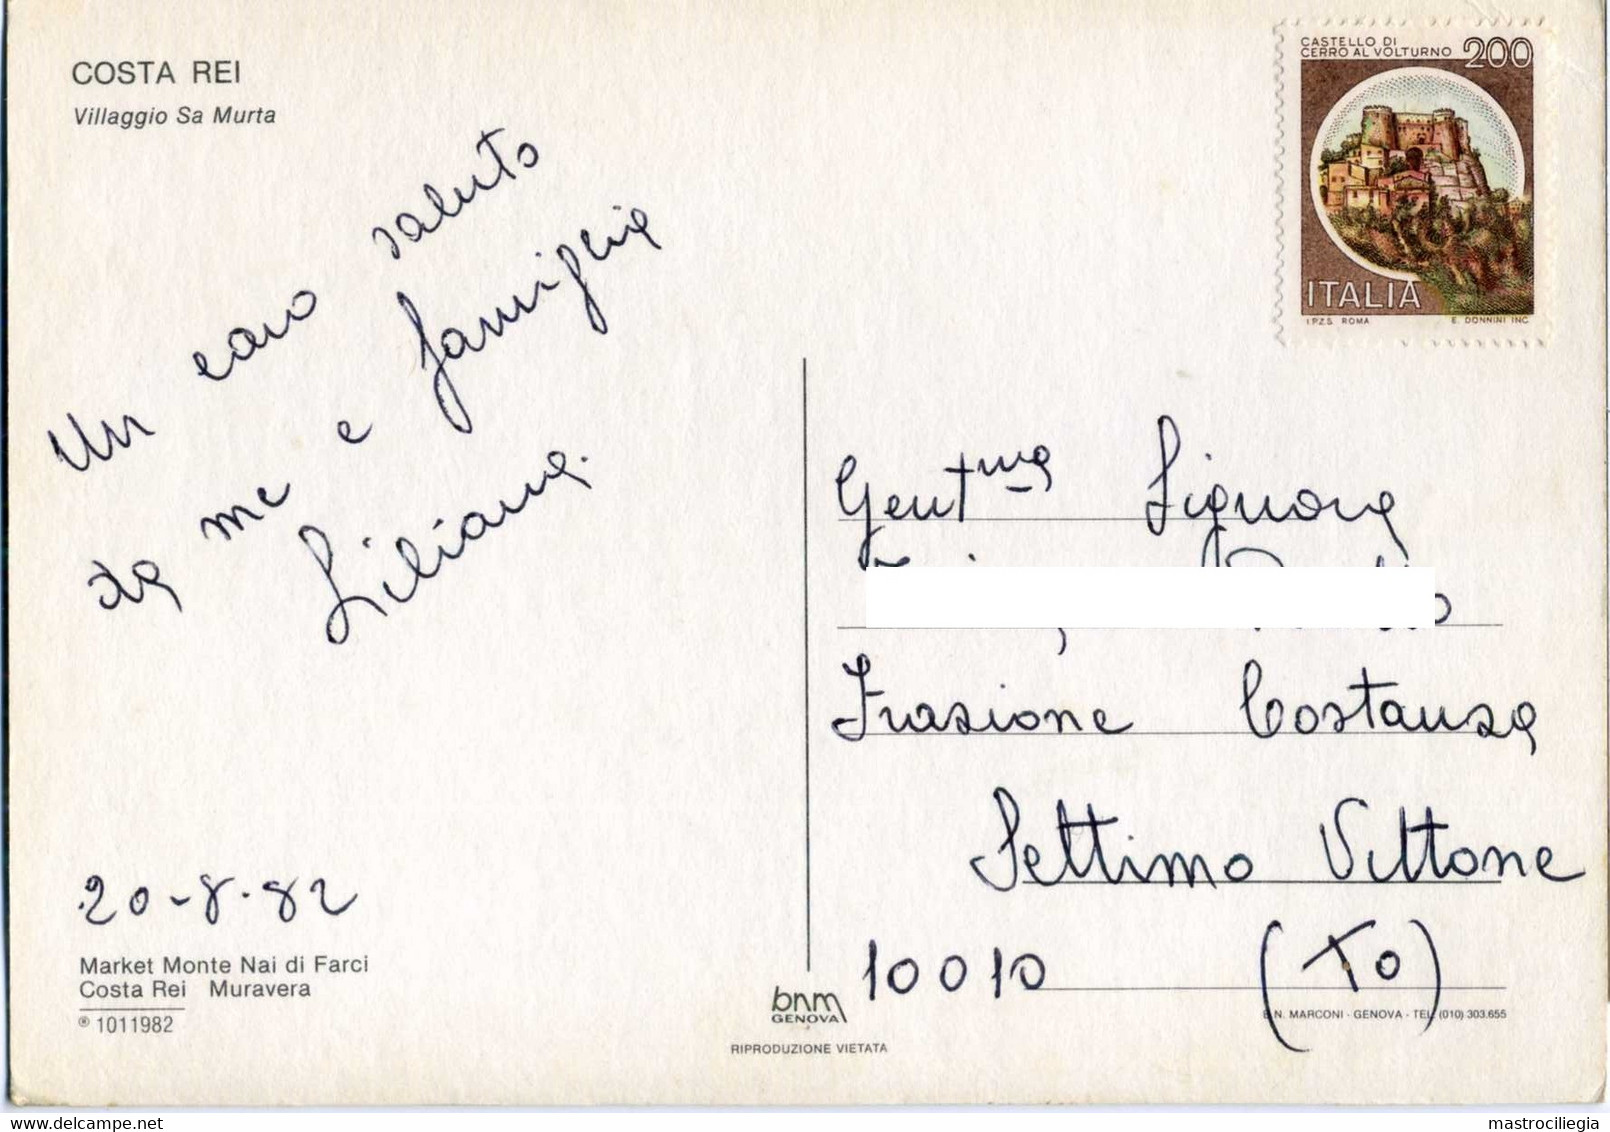 COSTA REI
Villaggio Sa Murta
Un caro saluto
da me e famiglia
Liliana.
20-8-82
Market Monte Nai di Farci
Costa Rei Muravera
® 1011982
bnm
GENOVA
RIPRODUZIONE VIETATA
CASTELLO DI
CERRO AL VOLTURNO 200
ITALIA
I.P.Z.S. ROMA E. DONNINI INC.
Gent.ma Signora
Frazione Costanza
Settimo Vittone
10010 (To)
B.N. MARCONI - GENOVA - TEL. (010) 303.655
mastrociliegia